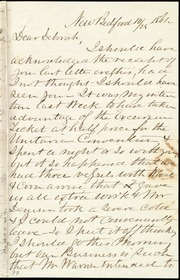 New Bedford 10/15 1861.
Dear Deborah
I should have
acknowledged the receipt of
your last letter ere this, have
I not thought I should have
seen you. It was my inten
tion last Week to have taken
advantage of the Excursion
Ticket at half price for the
Unitarian Convention &
spent a night or two with
you it so happened that we
had three vessels with
& Corn arrive that & gave
us all extra work & Mr
took a & Sick
& I could not conveniently
leave so I put it off thinking
I should go this Morning
but our Business is such
that Mr Warne intended to